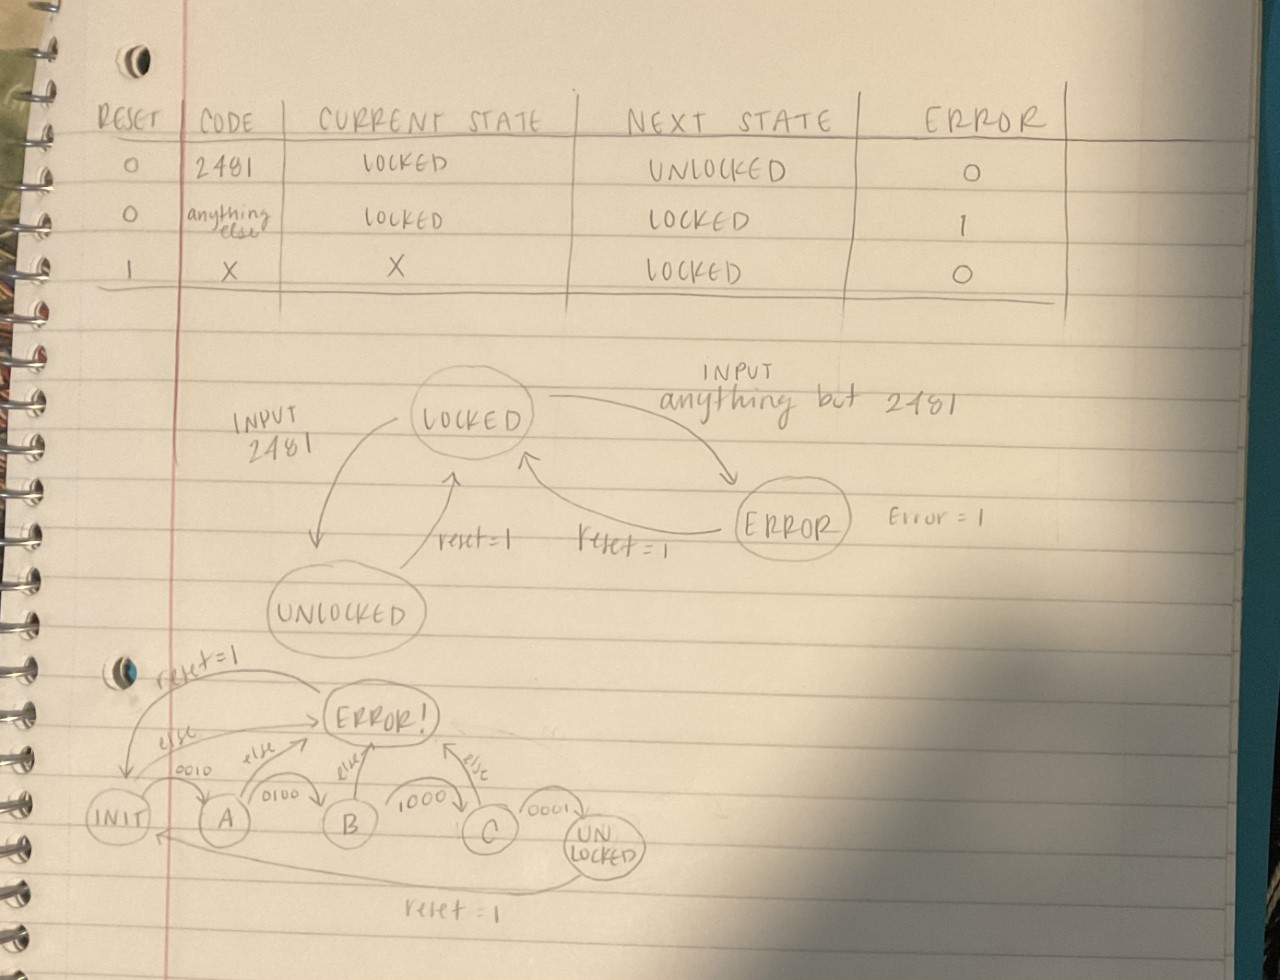 RESET CODE CURRENT STATE NEXT STATE ERROR
0 2481 LOCKED UNLOCKED 0
0 anything else LOCKED LOCKED 1
1 X X LOCKED 0
INPUT
anything but 2481
INPUT
2481
LOCKED
ERROR
Error = 1
reset=1
reset=1
UNLOCKED
reset=1
ERROR!
else
else
else
else
0010
0100
1000
0001
INIT
A
B
C
UN
LOCKED
reset=1